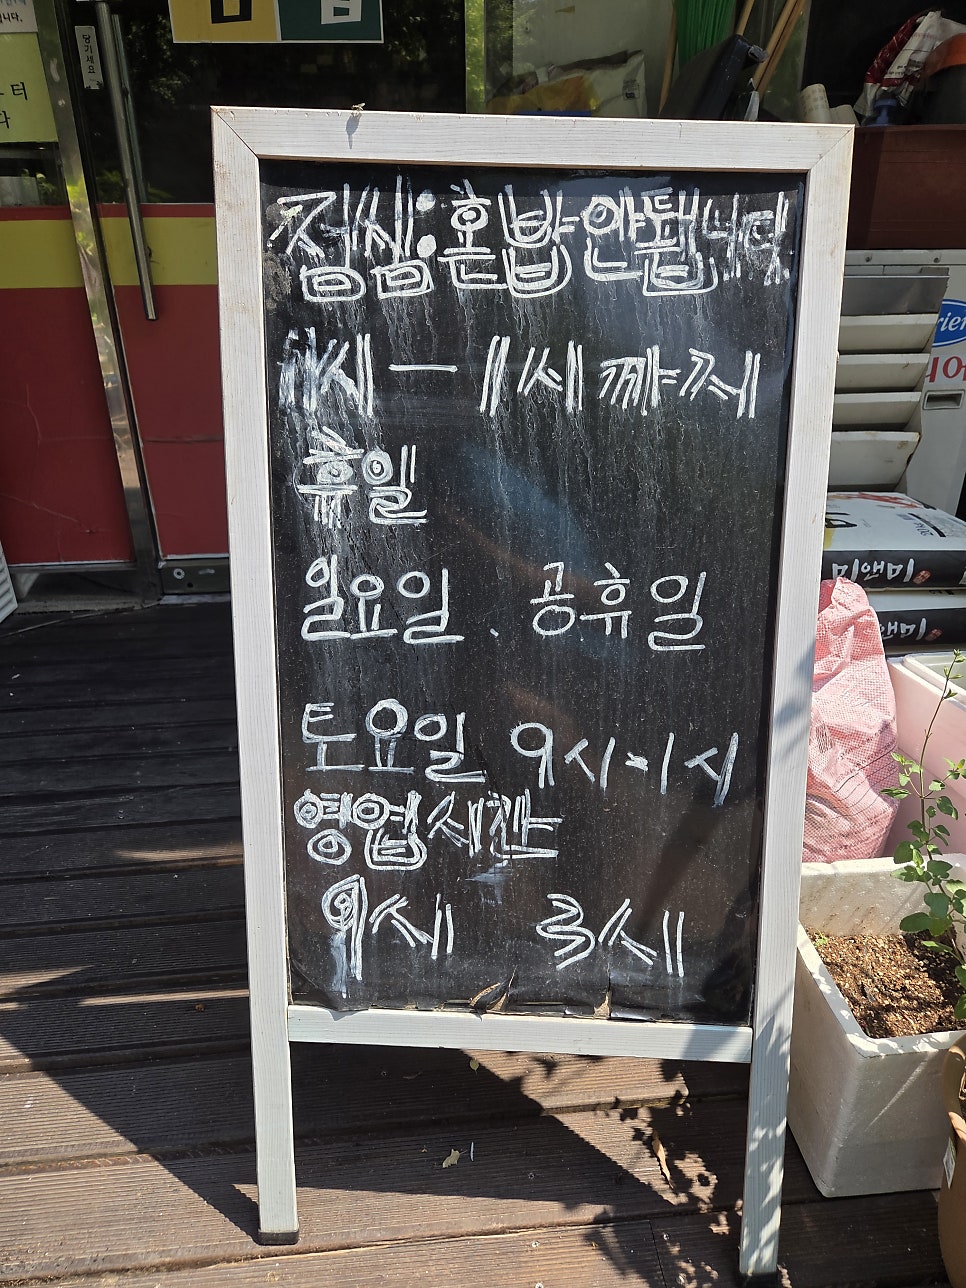 당기세요
터
다
점심:혼밥안됩니다
11시 — 1시까지
휴일
일요일 . 공휴일
토요일 9시-1시
영업시간
9시 3시
미앤미
미앤미